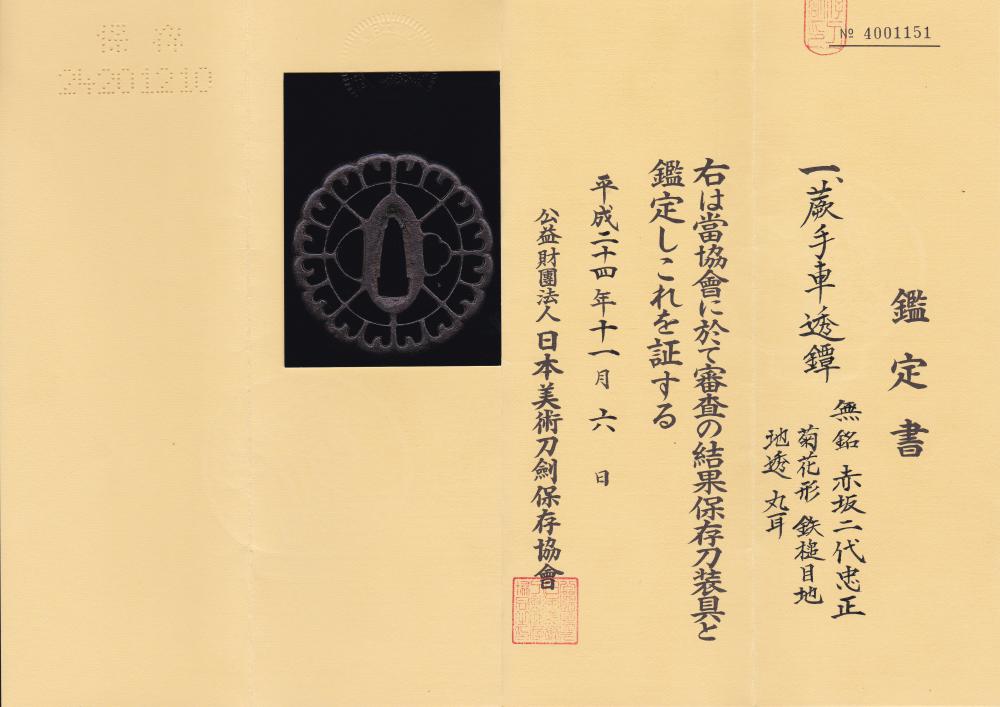 № 4001151
鑑定書
一、蕨手車透鐔
無銘 赤坂二代忠正
菊花形 鉄槌目地
地透 丸耳
右は當協會に於て審査の結果保存刀装具と
鑑定しこれを証する
平成二十四年十一月六日
公益財團法人 日本美術刀劍保存協會
保存
24201210